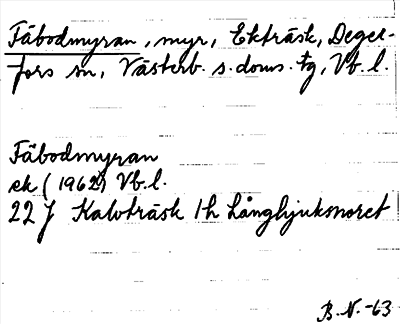 Fäbodmyran, myr, Ekträsk, Deger-
fors sn, Västerb. s. doms. tg, Vb. l.
Fäbodmyran
ek (1962) Vb. l.
22 J Kalvträsk 1h Långhjuksnoret
B. N. -63